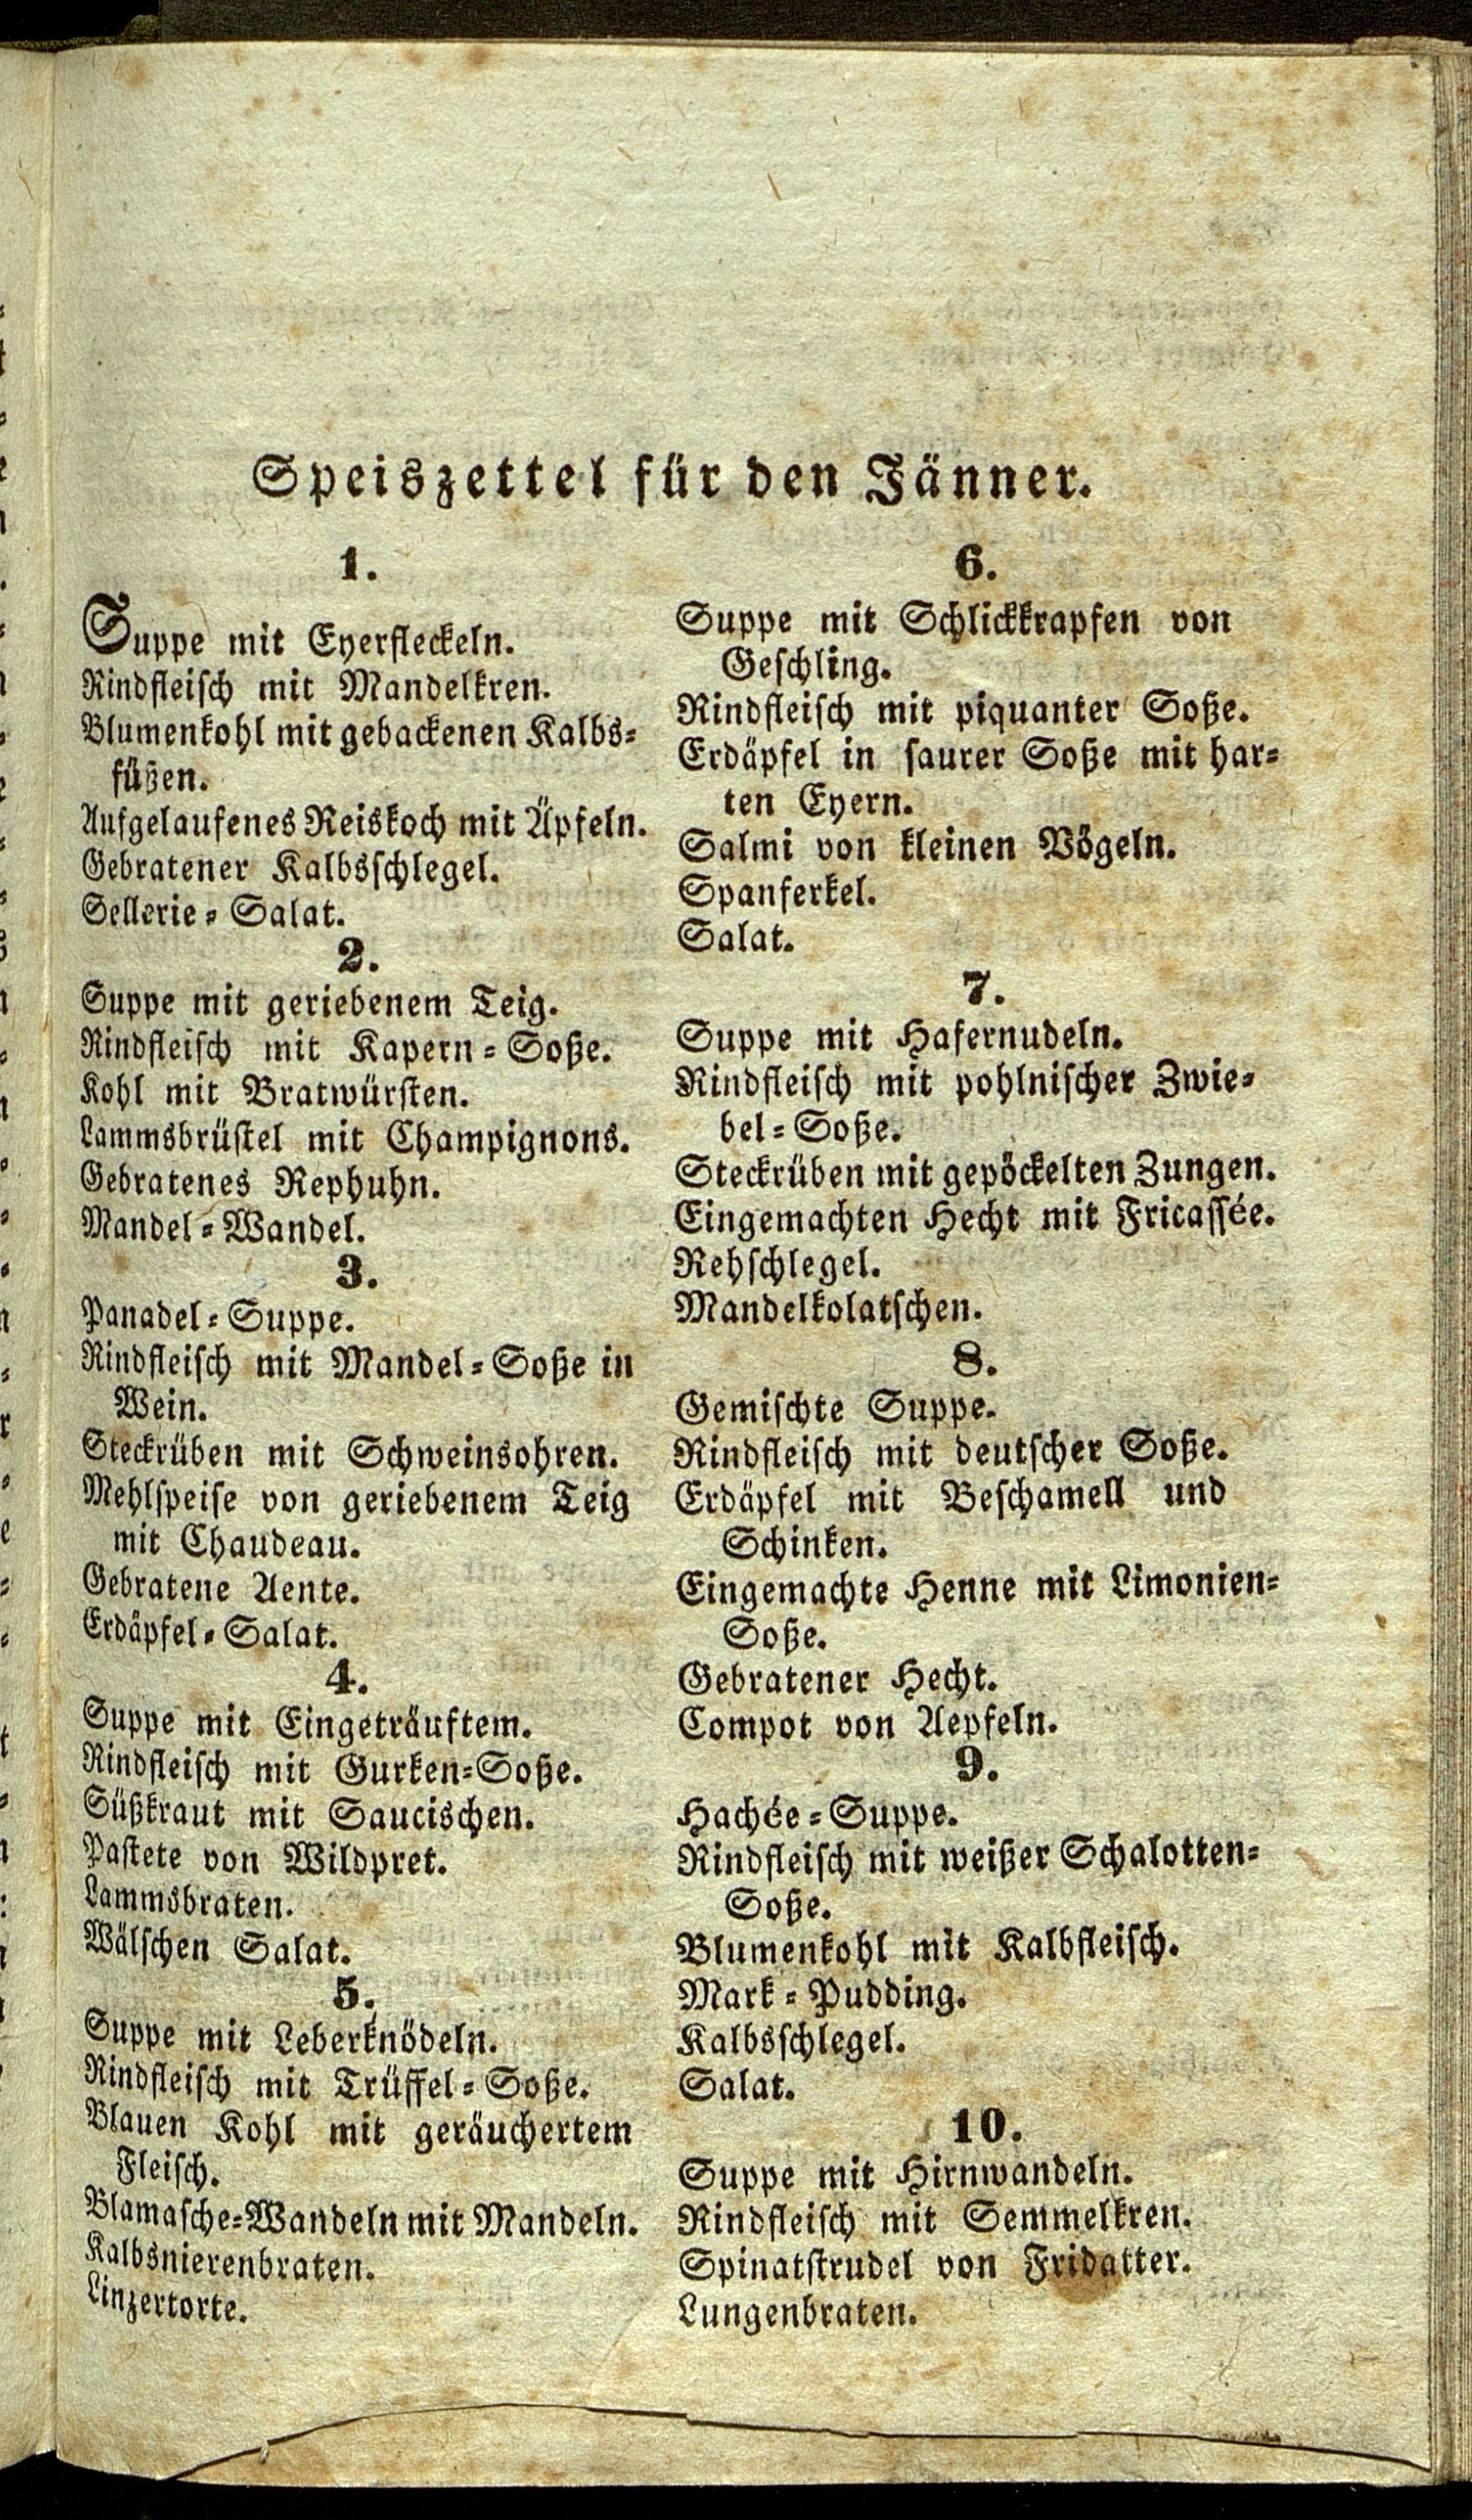 Speiszettel für den Jänner.
1.
Suppe mit Eyerfleckeln.
Rindfleisch mit Mandelkren.
Blumenkohl mit gebackenen Kalbs-
füßen.
Aufgelaufenes Reiskoch mit Äpfeln.
Gebratener Kalbsschlegel.
Sellerie-Salat.
2.
Suppe mit geriebenem Teig.
Rindfleisch mit Kapern-Soße.
Kohl mit Bratwürsten.
Lammsbrüstel mit Champignons.
Gebratenes Rephuhn.
Mandel-Wandel.
3.
Panadel-Suppe.
Rindfleisch mit Mandel-Soße in
Wein.
Steckrüben mit Schweinsohren.
Mehlspeise von geriebenem Teig
mit Chaudeau.
Gebratene Aente.
Erdäpfel-Salat.
4.
Suppe mit Eingeträuftem.
Rindfleisch mit Gurken-Soße.
Süßkraut mit Saucischen.
Pastete von Wildpret.
Lammsbraten.
Wälschen Salat.
5.
Suppe mit Leberknödeln.
Rindfleisch mit Trüffel-Soße.
Blauen Kohl mit geräuchertem
Fleisch.
Blamasche-Wandeln mit Mandeln.
Kalbsnierenbraten.
Linzertorte.
6.
Suppe mit Schlickkrapfen von
Geschling.
Rindfleisch mit piquanter Soße.
Erdäpfel in saurer Soße mit har-
ten Eyern.
Salmi von kleinen Vögeln.
Spanferkel.
Salat.
7.
Suppe mit Hafernudeln.
Rindfleisch mit pohlnischer Zwie-
bel-Soße.
Steckrüben mit gepöckelten Zungen.
Eingemachten Hecht mit Fricassée.
Rehschlegel.
Mandelkolatschen.
8.
Gemischte Suppe.
Rindfleisch mit deutscher Soße.
Erdäpfel mit Beschamell und
Schinken.
Eingemachte Henne mit Limonien-
Soße.
Gebratener Hecht.
Compot von Aepfeln.
9.
Hachée-Suppe.
Rindfleisch mit weißer Schalotten-
Soße.
Blumenkohl mit Kalbfleisch.
Mark-Pudding.
Kalbsschlegel.
Salat.
10.
Suppe mit Hirnwandeln.
Rindfleisch mit Semmelkren.
Spinatstrudel von Fridatter.
Lungenbraten.